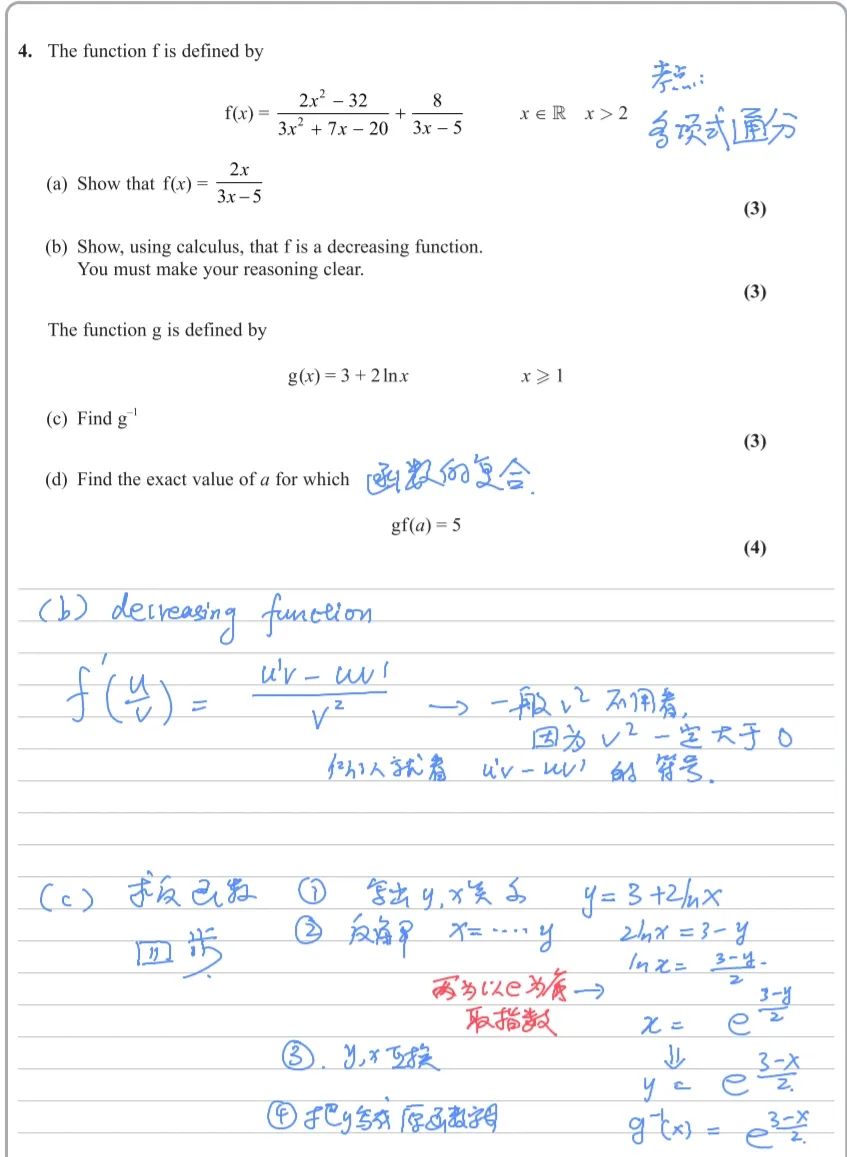 4. The function f is defined by
f(x) = (2x² − 32)/(3x² + 7x − 20) + 8/(3x − 5)    x ∈ ℝ  x > 2
考点:
多项式通分
(a) Show that f(x) = 2x/(3x − 5)
(3)
(b) Show, using calculus, that f is a decreasing function.
You must make your reasoning clear.
(3)
The function g is defined by
g(x) = 3 + 2 ln x    x ⩾ 1
(c) Find g⁻¹
(3)
(d) Find the exact value of a for which 函数的复合.
gf(a) = 5
(4)
(b) decreasing function
f′(u/v) = (u′v − uv′)/v² → 一般 v² 不用看,
因为 v² 一定大于 0
就看 u′v − uv′ 的 符号.
(c) 求反函数 ① 写出 y, x 关系 y = 3 + 2lnx
四步 ② 反解 x = ···· y 2lnx = 3 − y
lnx = (3−y)/2
两边以e为底 →
取指数 x = e^((3−y)/2)
③. y, x 互换 ⇓
y = e^((3−x)/2)
④ 把y写成 原函数字母 g⁻¹(x) = e^((3−x)/2)